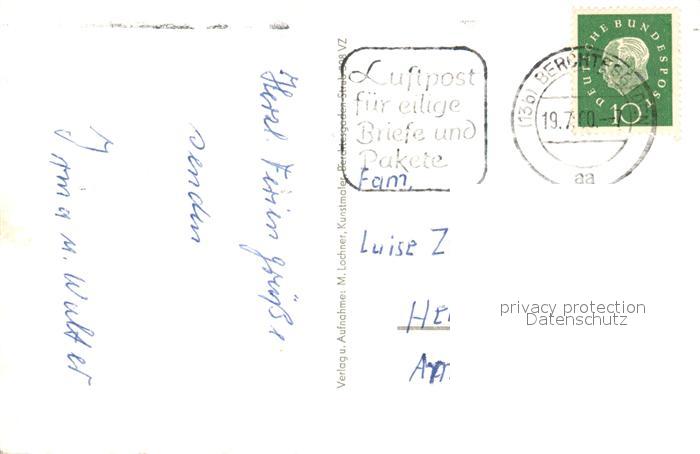 Herzl. Feriengrüße
senden
Irma u. Walter
Verlag u. Aufnahme: M. Lochner, Kunstmaler, Berchtesgaden-Strub
VZ
Luftpost
für eilige
Briefe und
Pakete
(13b) BERCHTESGADEN
19.7.60.-7
aa
DEUTSCHE BUNDESPOST
10
Fam.
Luise Z
He
privacy protection
Datenschutz